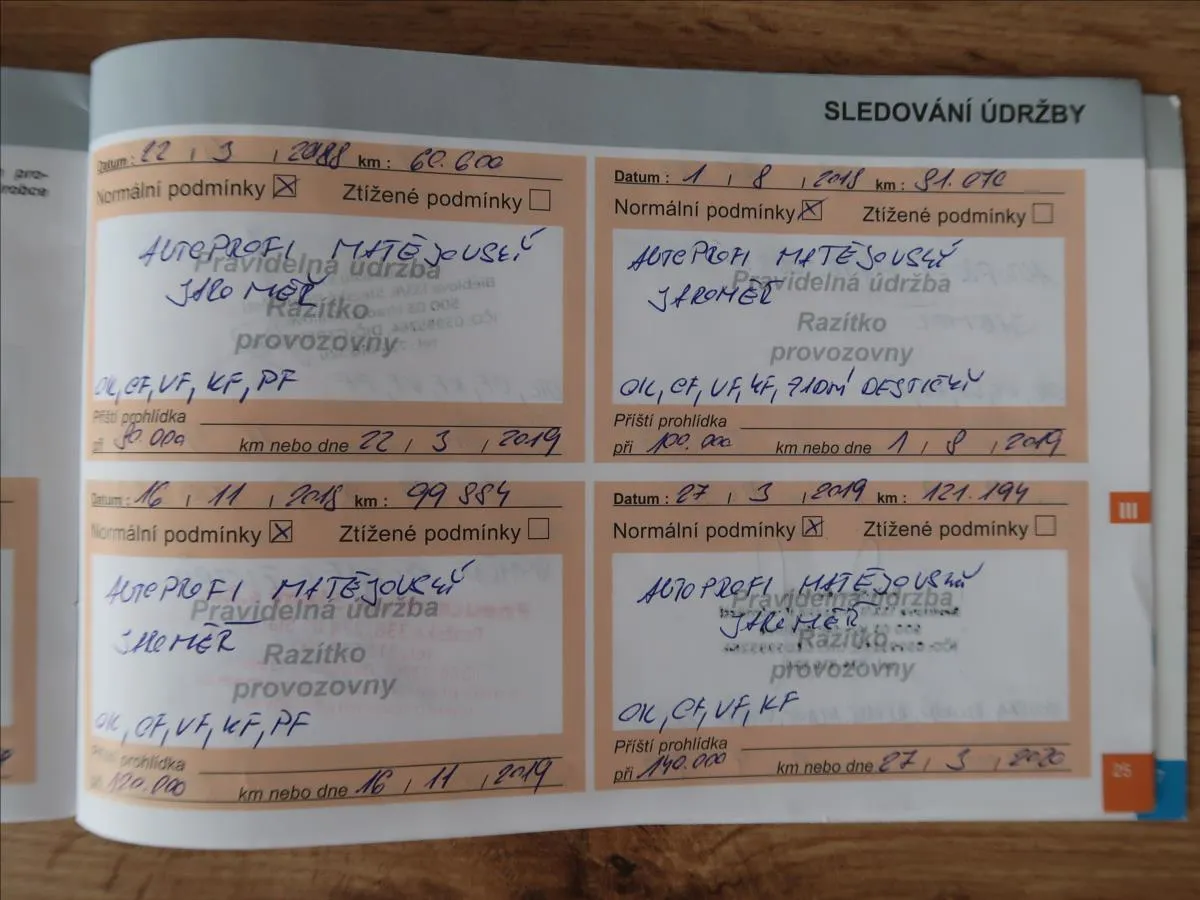 SLEDOVÁNÍ ÚDRŽBY
Datum : 22 / 3 / 2018 km : 60.600
Normální podmínky ☒ Ztížené podmínky ☐
AUTOPROFI MATĚJOVSKÝ
Pravidelná údržba
JAROMĚŘ
Razítko
provozovny
OK, CF, VF, KF, PF
Příští prohlídka
při 80.000 km nebo dne 22 / 3 / 2019
Datum : 1 / 8 / 2018 km : 81.070
Normální podmínky ☒ Ztížené podmínky ☐
AUTOPROFI MATĚJOVSKÝ
Pravidelná údržba
JAROMĚŘ
Razítko
provozovny
OK, CF, VF, KF, ZADNÍ DESTIČKY
Příští prohlídka
při 100.000 km nebo dne 1 / 8 / 2019
Datum : 16 / 11 / 2018 km : 99 884
Normální podmínky ☒ Ztížené podmínky ☐
AUTOPROFI MATĚJOVSKÝ
Pravidelná údržba
JAROMĚŘ
Razítko
provozovny
OK, CF, VF, KF, PF
Příští prohlídka
při 120.000 km nebo dne 16 / 11 / 2019
Datum : 27 / 3 / 2019 km : 121.194
Normální podmínky ☒ Ztížené podmínky ☐
AUTOPROFI MATĚJOVSKÝ
Pravidelná údržba
JAROMĚŘ
Razítko
provozovny
OK, CF, VF, KF
Příští prohlídka
při 140.000 km nebo dne 27 / 3 / 2020
III
25